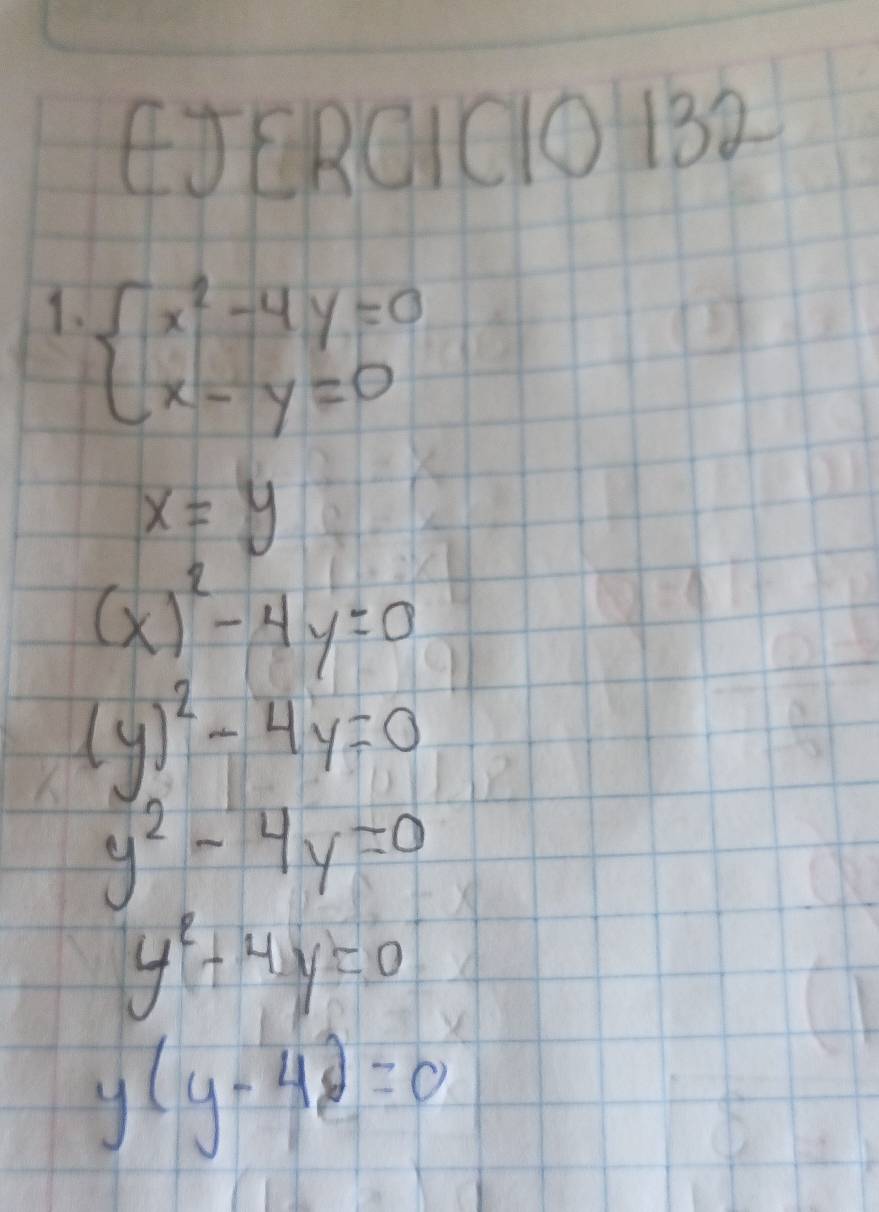 EJERCICIO 132
1. { x² - 4y = 0
x - y = 0
x = y
(x)² - 4y = 0
(y)² - 4y = 0
y² - 4y = 0
y² + 4y = 0
y(y - 4) = 0